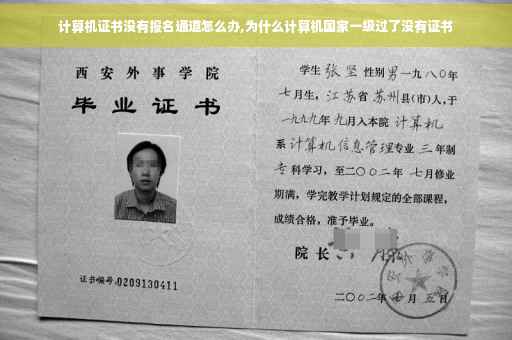 计算机证书没有报名通道怎么办,为什么计算机国家一级过了没有证书
西安外事学院
毕业证书
证书编号:0209130411
学生 张坚 性别男 一九八〇年
七月生，江苏省苏州县(市)人,于
一九九九年九月入本院 计算机
系 计算机信息管理专业 三年制
专科学习，至二〇〇二年 七月修业
期满，学完教学计划规定的全部课程，
成绩合格，准予毕业。
院长
二〇〇二年 月五日